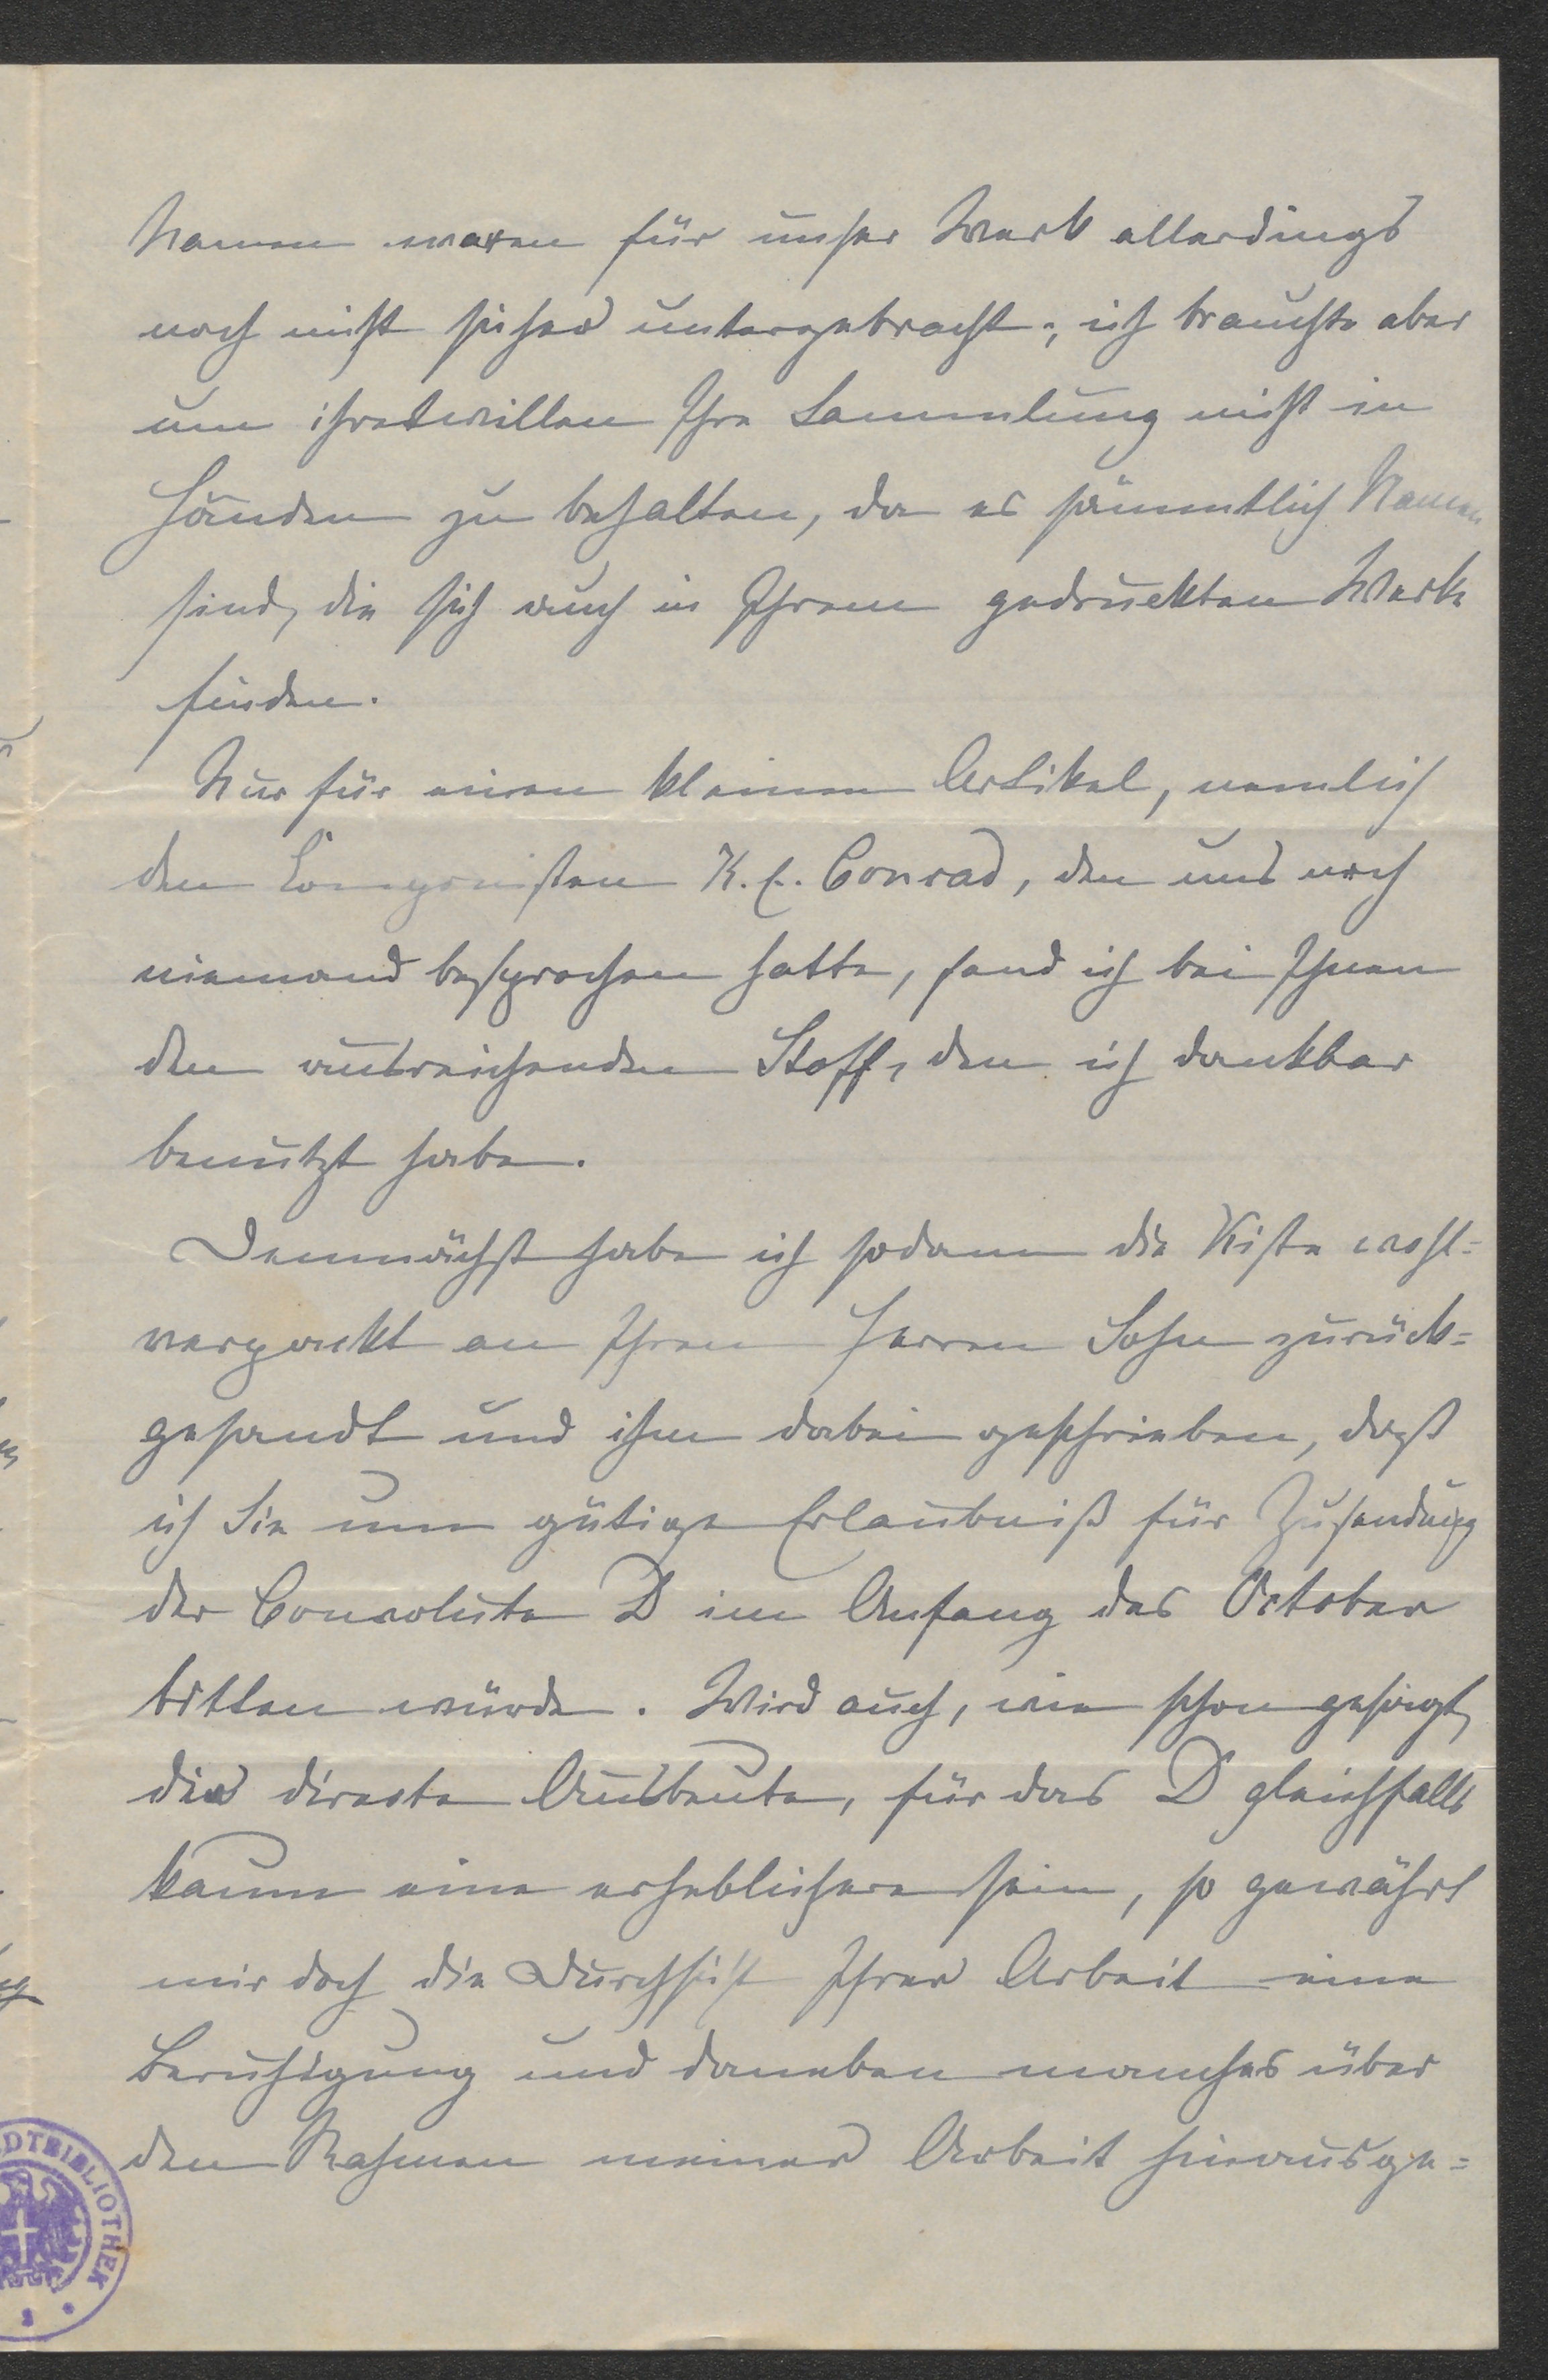 Namen waren für unser Werk allerdings
noch nicht sicher untergebracht; ich brauchte aber
um ihretwillen Ihre Sammlung nicht in
Händen zu behalten, da es sämmtlich Namen
sind, die sich auch in Ihrem gedruckten Werke
finden.
Nur für einen kleinen Artikel, nemlich
den Componisten K. E. Conrad, den uns noch
niemand besprochen hatte, fand ich bei Ihnen
den ausreichenden Stoff, den ich dankbar
benutzt habe.
Demnächst habe ich sodann die Kiste wohl=
verpackt an Ihren Herren Sohn zurück=
gesandt und ihm dabei geschrieben, daß
ich Sie um gütige Erlaubniß für Zusendung
der Convolute D im Anfang des October
bitten würde. Wird auch, wie schon gesagt,
die directe Ausbeute, für das D gleichfalls
kaum eine erheblichere sein, so gewährt
mir doch die Durchsicht Ihrer Arbeit eine
Beruhigung und daneben manches über
den Rahmen meiner Arbeit hinausge=
DTBIBLIOTHEK